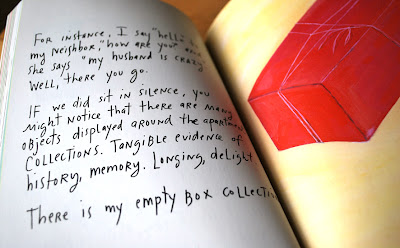 FOR instance, I say "hello" to
my neighbor, "how are you" and
she says "my husband is crazy"
Well, there you go.
IF we did sit in silence, you
might notice that there are many
objects displayed around the apartment
COLLECTIONS. Tangible evidence of
history, memory. Longing, delight
There is my empty box collection